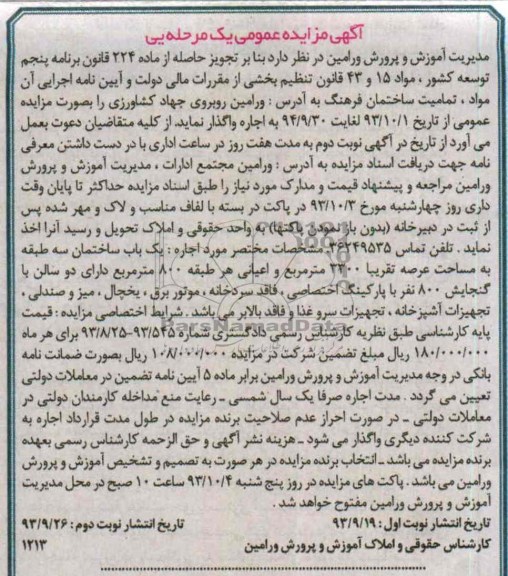 آگهی مزایده عمومی یک مرحله یی
مدیریت آموزش و پرورش ورامین در نظر دارد بنا بر تجویز حاصله از ماده ۲۲۴ قانون برنامه پنجم
توسعه کشور ، مواد ۱۵ و ۴۳ قانون تنظیم بخشی از مقررات مالی دولت و آیین نامه اجرایی آن
مواد ، تمامیت ساختمان فرهنگ به آدرس : ورامین روبروی جهاد کشاورزی را بصورت مزایده
عمومی از تاریخ ۹۳/۱۰/۱ لغایت ۹۴/۹/۳۰ به اجاره واگذار نماید. از کلیه متقاضیان دعوت بعمل
می آورد از تاریخ در آگهی نوبت دوم به مدت هفت روز در ساعت اداری با در دست داشتن معرفی
نامه جهت دریافت اسناد مزایده به آدرس : ورامین مجتمع ادارات ، مدیریت آموزش و پرورش
ورامین مراجعه و پیشنهاد قیمت و مدارک مورد نیاز را طبق اسناد مزایده حداکثر تا پایان وقت
داری روز چهارشنبه مورخ ۹۳/۱۰/۳ در پاکت در بسته با لفاف مناسب و لاک و مهر شده پس
از ثبت در دبیرخانه (بدون باز نمودن پاکتها) به واحد حقوقی و املاک تحویل و رسید آنرا اخذ
نماید . تلفن تماس ۳۶۲۴۹۵۳۵ مشخصات مختصر مورد اجاره : یک باب ساختمان سه طبقه
به مساحت عرصه تقریبا ۲۲۰۰ مترمربع و اعیانی هر طبقه ۸۰۰ مترمربع دارای دو سالن با
گنجایش ۸۰۰ نفر با پارکینگ اختصاصی ، فاقد سردخانه ، موتور برق ، یخچال ، میز و صندلی ،
تجهیزات آشپزخانه ، تجهیزات سرو غذا و فاقد بالابر می باشد . شرایط اختصاصی مزایده : قیمت
پایه کارشناسی طبق نظریه کارشناس رسمی دادگستری شماره ۹۳/۵۴۵-۹۳/۸/۲۵ برای هر ماه
۱۸۰/۰۰۰/۰۰۰ ریال مبلغ تضمین شرکت در مزایده ۱۰۸/۰۰۰/۰۰۰ ریال بصورت ضمانت نامه
بانکی در وجه مدیریت آموزش و پرورش ورامین برابر ماده ۵ آیین نامه تضمین در معاملات دولتی
تعیین می گردد . مدت اجاره صرفا یک سال شمسی ـ رعایت منع مداخله کارمندان دولتی در
معاملات دولتی ـ در صورت احراز عدم صلاحیت برنده مزایده در طول مدت قرارداد اجاره به
شرکت کننده دیگری واگذار می شود ـ هزینه نشر آگهی و حق الزحمه کارشناس رسمی بعهده
برنده مزایده می باشد ـ انتخاب برنده مزایده در هر صورت به تصمیم و تشخیص آموزش و پرورش
ورامین می باشد . پاکت های مزایده در روز پنج شنبه ۹۳/۱۰/۴ ساعت ۱۰ صبح در محل مدیریت
آموزش و پرورش ورامین مفتوح خواهد شد .
تاریخ انتشار نوبت اول : ۹۳/۹/۱۹ تاریخ انتشار نوبت دوم : ۹۳/۹/۲۶
کارشناس حقوقی و املاک آموزش و پرورش ورامین ۱۲۱۳